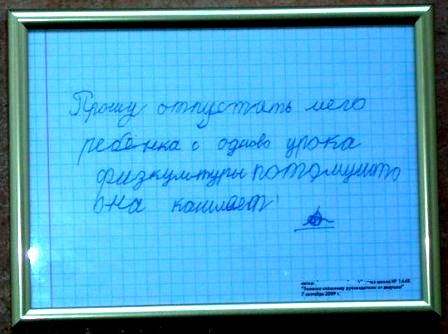 Прошу отпустать мего
ребёнка с одново урока
физкультуры потомушто
она кашляет
школы № 1448
"Записка классному руководителю от дедушки"
7 октября 2009 г.